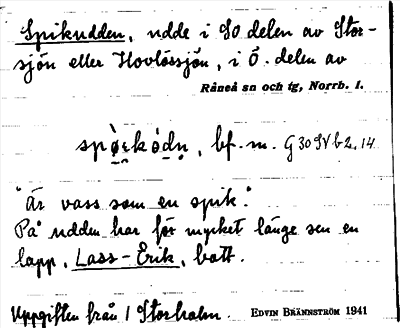 Spikudden, udde i SO delen av Stor-
sjön eller Hovlössjön, i Ö. delen av
Råneå sn och tg, Norrb. l.
bf. m. G30 SV b 2, 14
"Är vass som en spik."
På udden har för mycket länge sen en
lapp, Lass-Erik, bott.
Uppgiften från 1 Storholm. EDVIN BRÄNNSTRÖM 1941